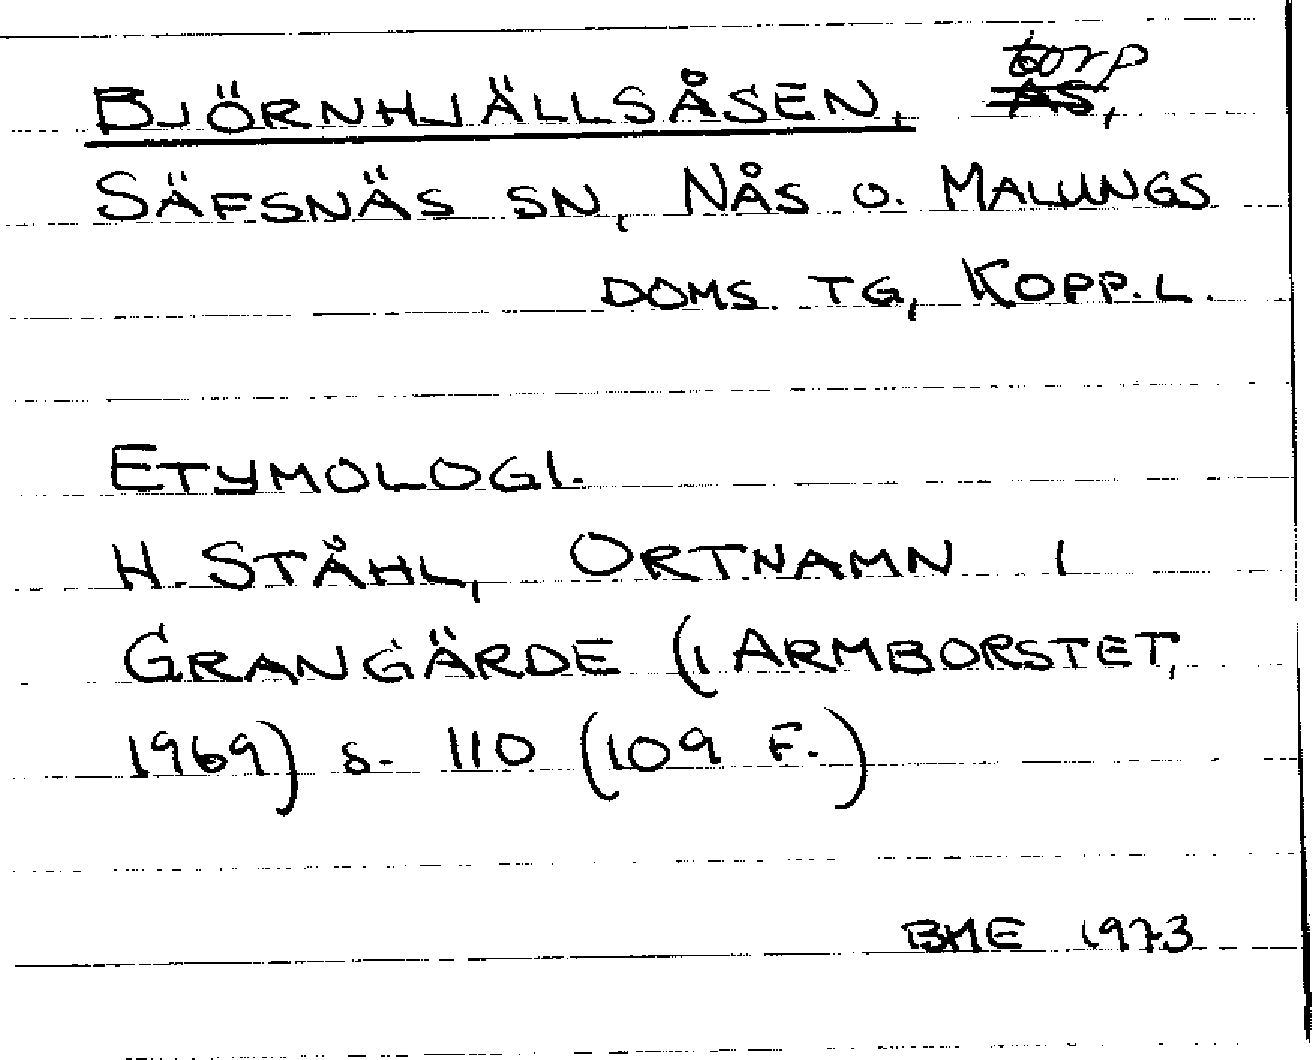 BJÖRNHJÄLLSÅSEN, torp
ÅS,
SÄFSNÄS SN, NÅS O. MALUNGS
DOMS. TG, KOPP. L.
ETYMOLOGI.
H. STÅHL, ORTNAMN I
GRANGÄRDE (I ARMBORSTET,
1969) S. 110 (109 F.)
BME 1973